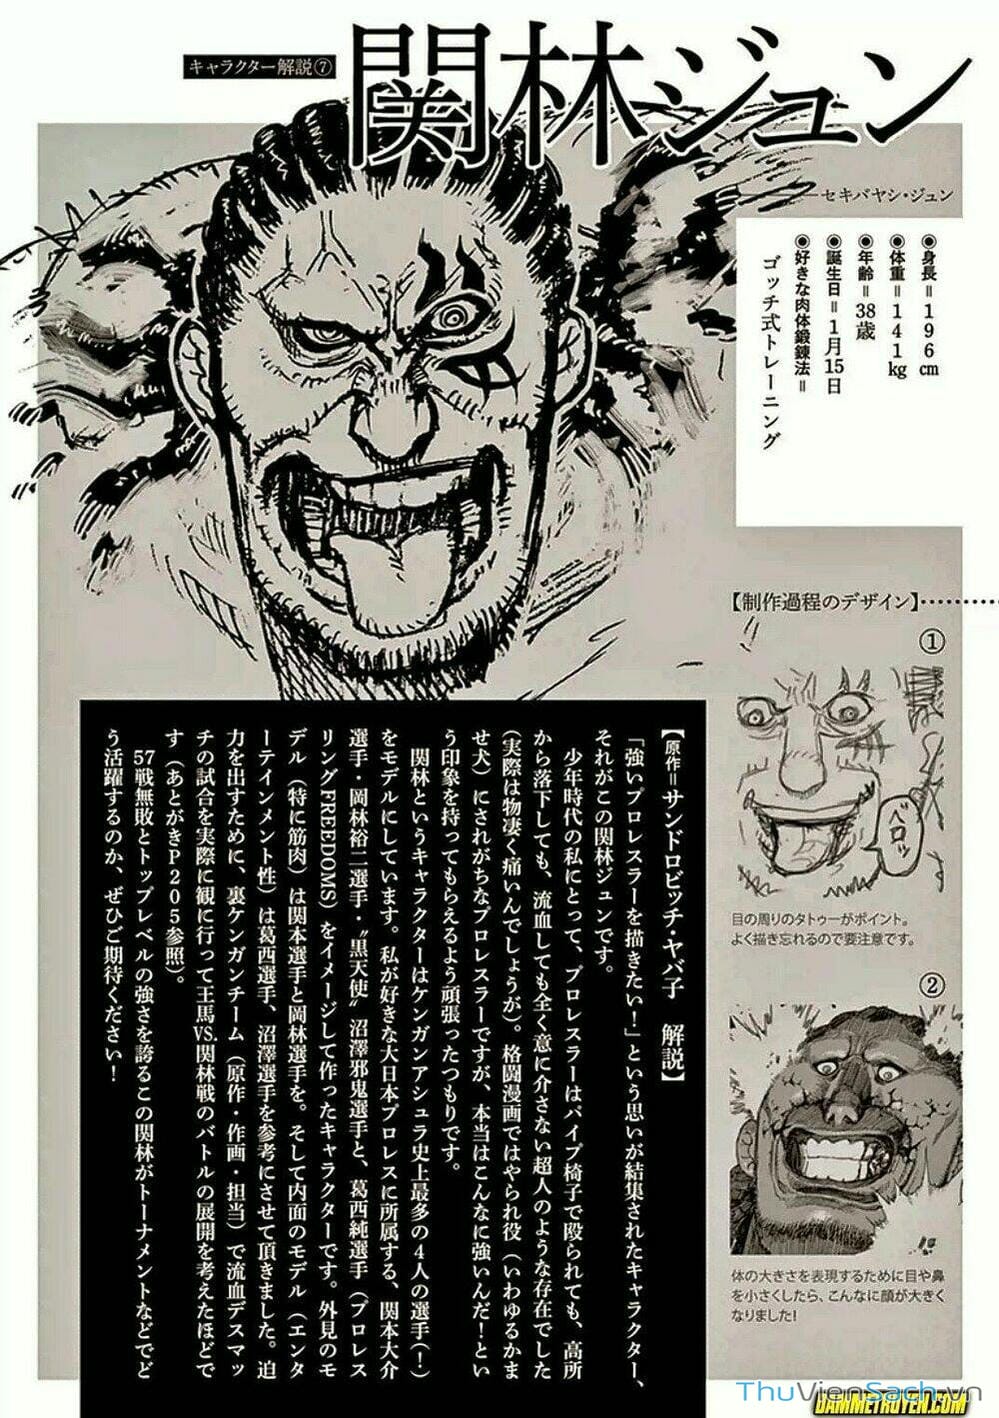 キャラクター解説⑦
関林ジュン
―セキバヤシ・ジュン
●身長＝196cm
●体重＝141kg
●年齢＝38歳
●誕生日＝1月15日
●好きな肉体鍛錬法＝
ゴッチ式トレーニング
【制作過程のデザイン】
①
ベロッ
目の周りのタトゥーがポイント。
よく描き忘れるので要注意です。
②
体の大きさを表現するために目や鼻
を小さくしたら、こんなに顔が大きく
なりました!
【原作＝サンドロビッチ・ヤバ子　解説】
「強いプロレスラーを描きたい！」という思いが結集されたキャラクター、
それがこの関林ジュンです。
少年時代の私にとって、プロレスラーはパイプ椅子で殴られても、高所
から落下しても、流血しても全く意に介さない超人のような存在でした
（実際は物凄く痛いんでしょうが）。格闘漫画ではやられ役（いわゆるかま
せ犬）にされがちなプロレスラーですが、本当はこんなに強いんだ！とい
う印象を持ってもらえるよう頑張ったつもりです。
関林というキャラクターはケンガンアシュラ史上最多の4人の選手（！）
をモデルにしています。私が好きな大日本プロレスに所属する、関本大介
選手・岡林裕二選手・〝黒天使〟沼澤邪鬼選手と、葛西純選手（プロレス
リングFREEDOMS）をイメージして作ったキャラクターです。外見のモ
デル（特に筋肉）は関本選手と岡林選手を。そして内面のモデル（エンタ
ーテインメント性）は葛西選手、沼澤選手を参考にさせて頂きました。迫
力を出すために、裏ケンガンチーム（原作・作画・担当）で流血デスマッ
チの試合を実際に観に行って王馬VS.関林戦のバトルの展開を考えたほどで
す（あとがきP205参照）。
57戦無敗とトップレベルの強さを誇るこの関林がトーナメントなどでど
う活躍するのか、ぜひご期待ください！
ThuVienSach.vn
DAMMETRUYEN.COM